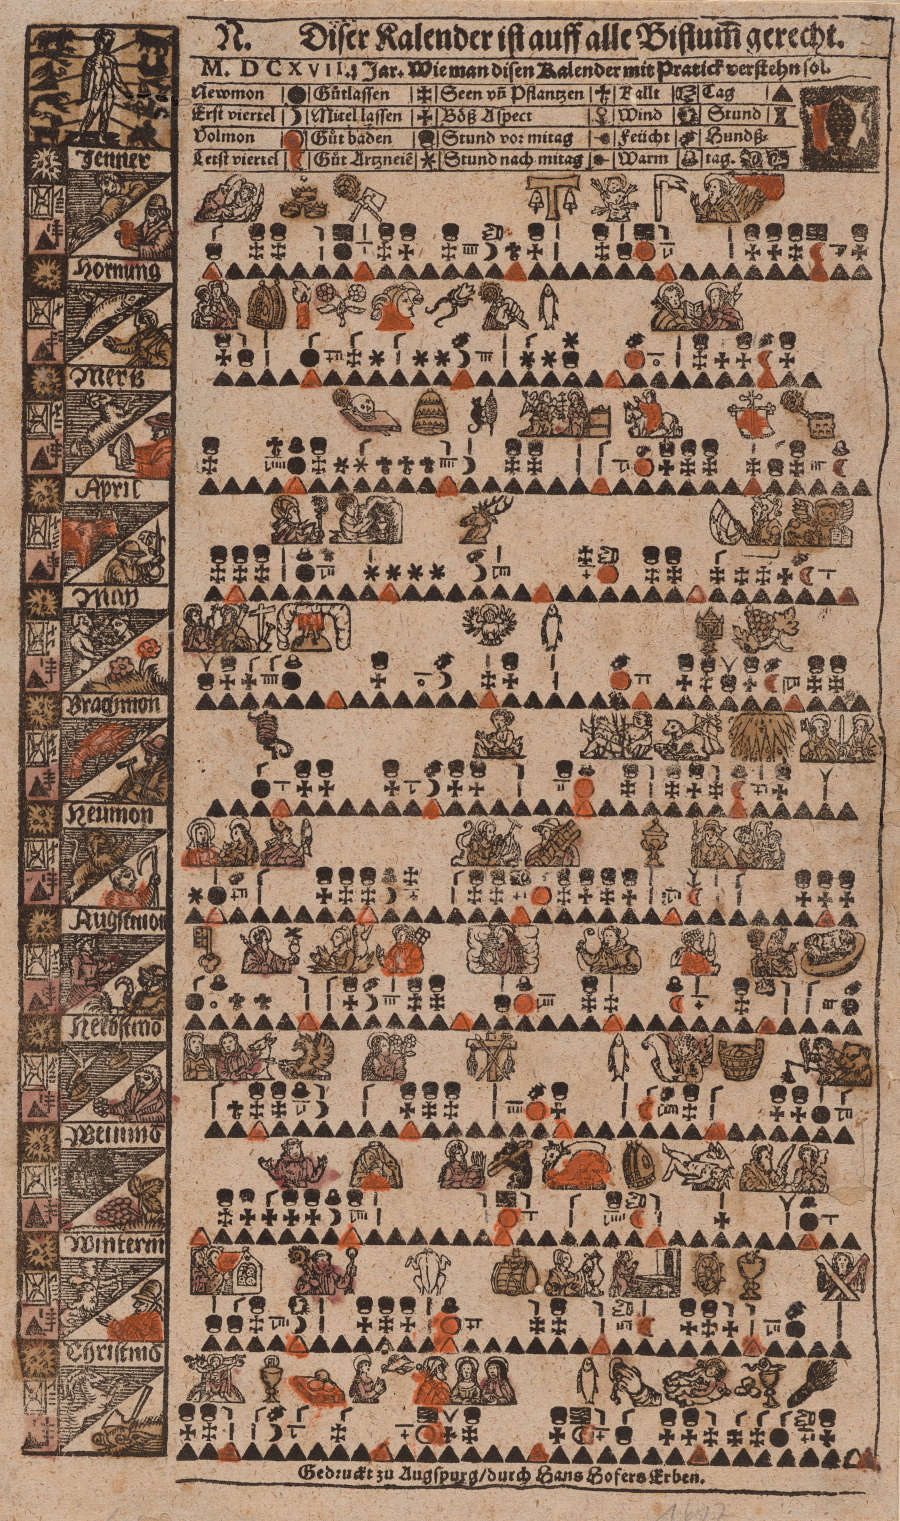 N. Diser Kalender ist auff alle Bistum̃ gerecht.
M. D C X V I I. Jar. Wie man disen Kalender mit Pratick verstehn sol.
Newmon Gůtlassen Seen vñ Pflantzen Kallt Tag
Erst viertel Mitel lassen Bőß Aspect Wind Stund
Volmon Gůt baden Stund vor mitag Feücht Hundß-
Letst viertel Gůt Artzneiẽ Stund nach mitag Warm tag.
Jenner
Hornung
Mertz
April
May
Brachmon
Heumon
Augstmon
Herbstmõ
Weinmõ
Winterm
Christmõ
Gedruckt zu Augspurg/durch Hans Hofers Erben.